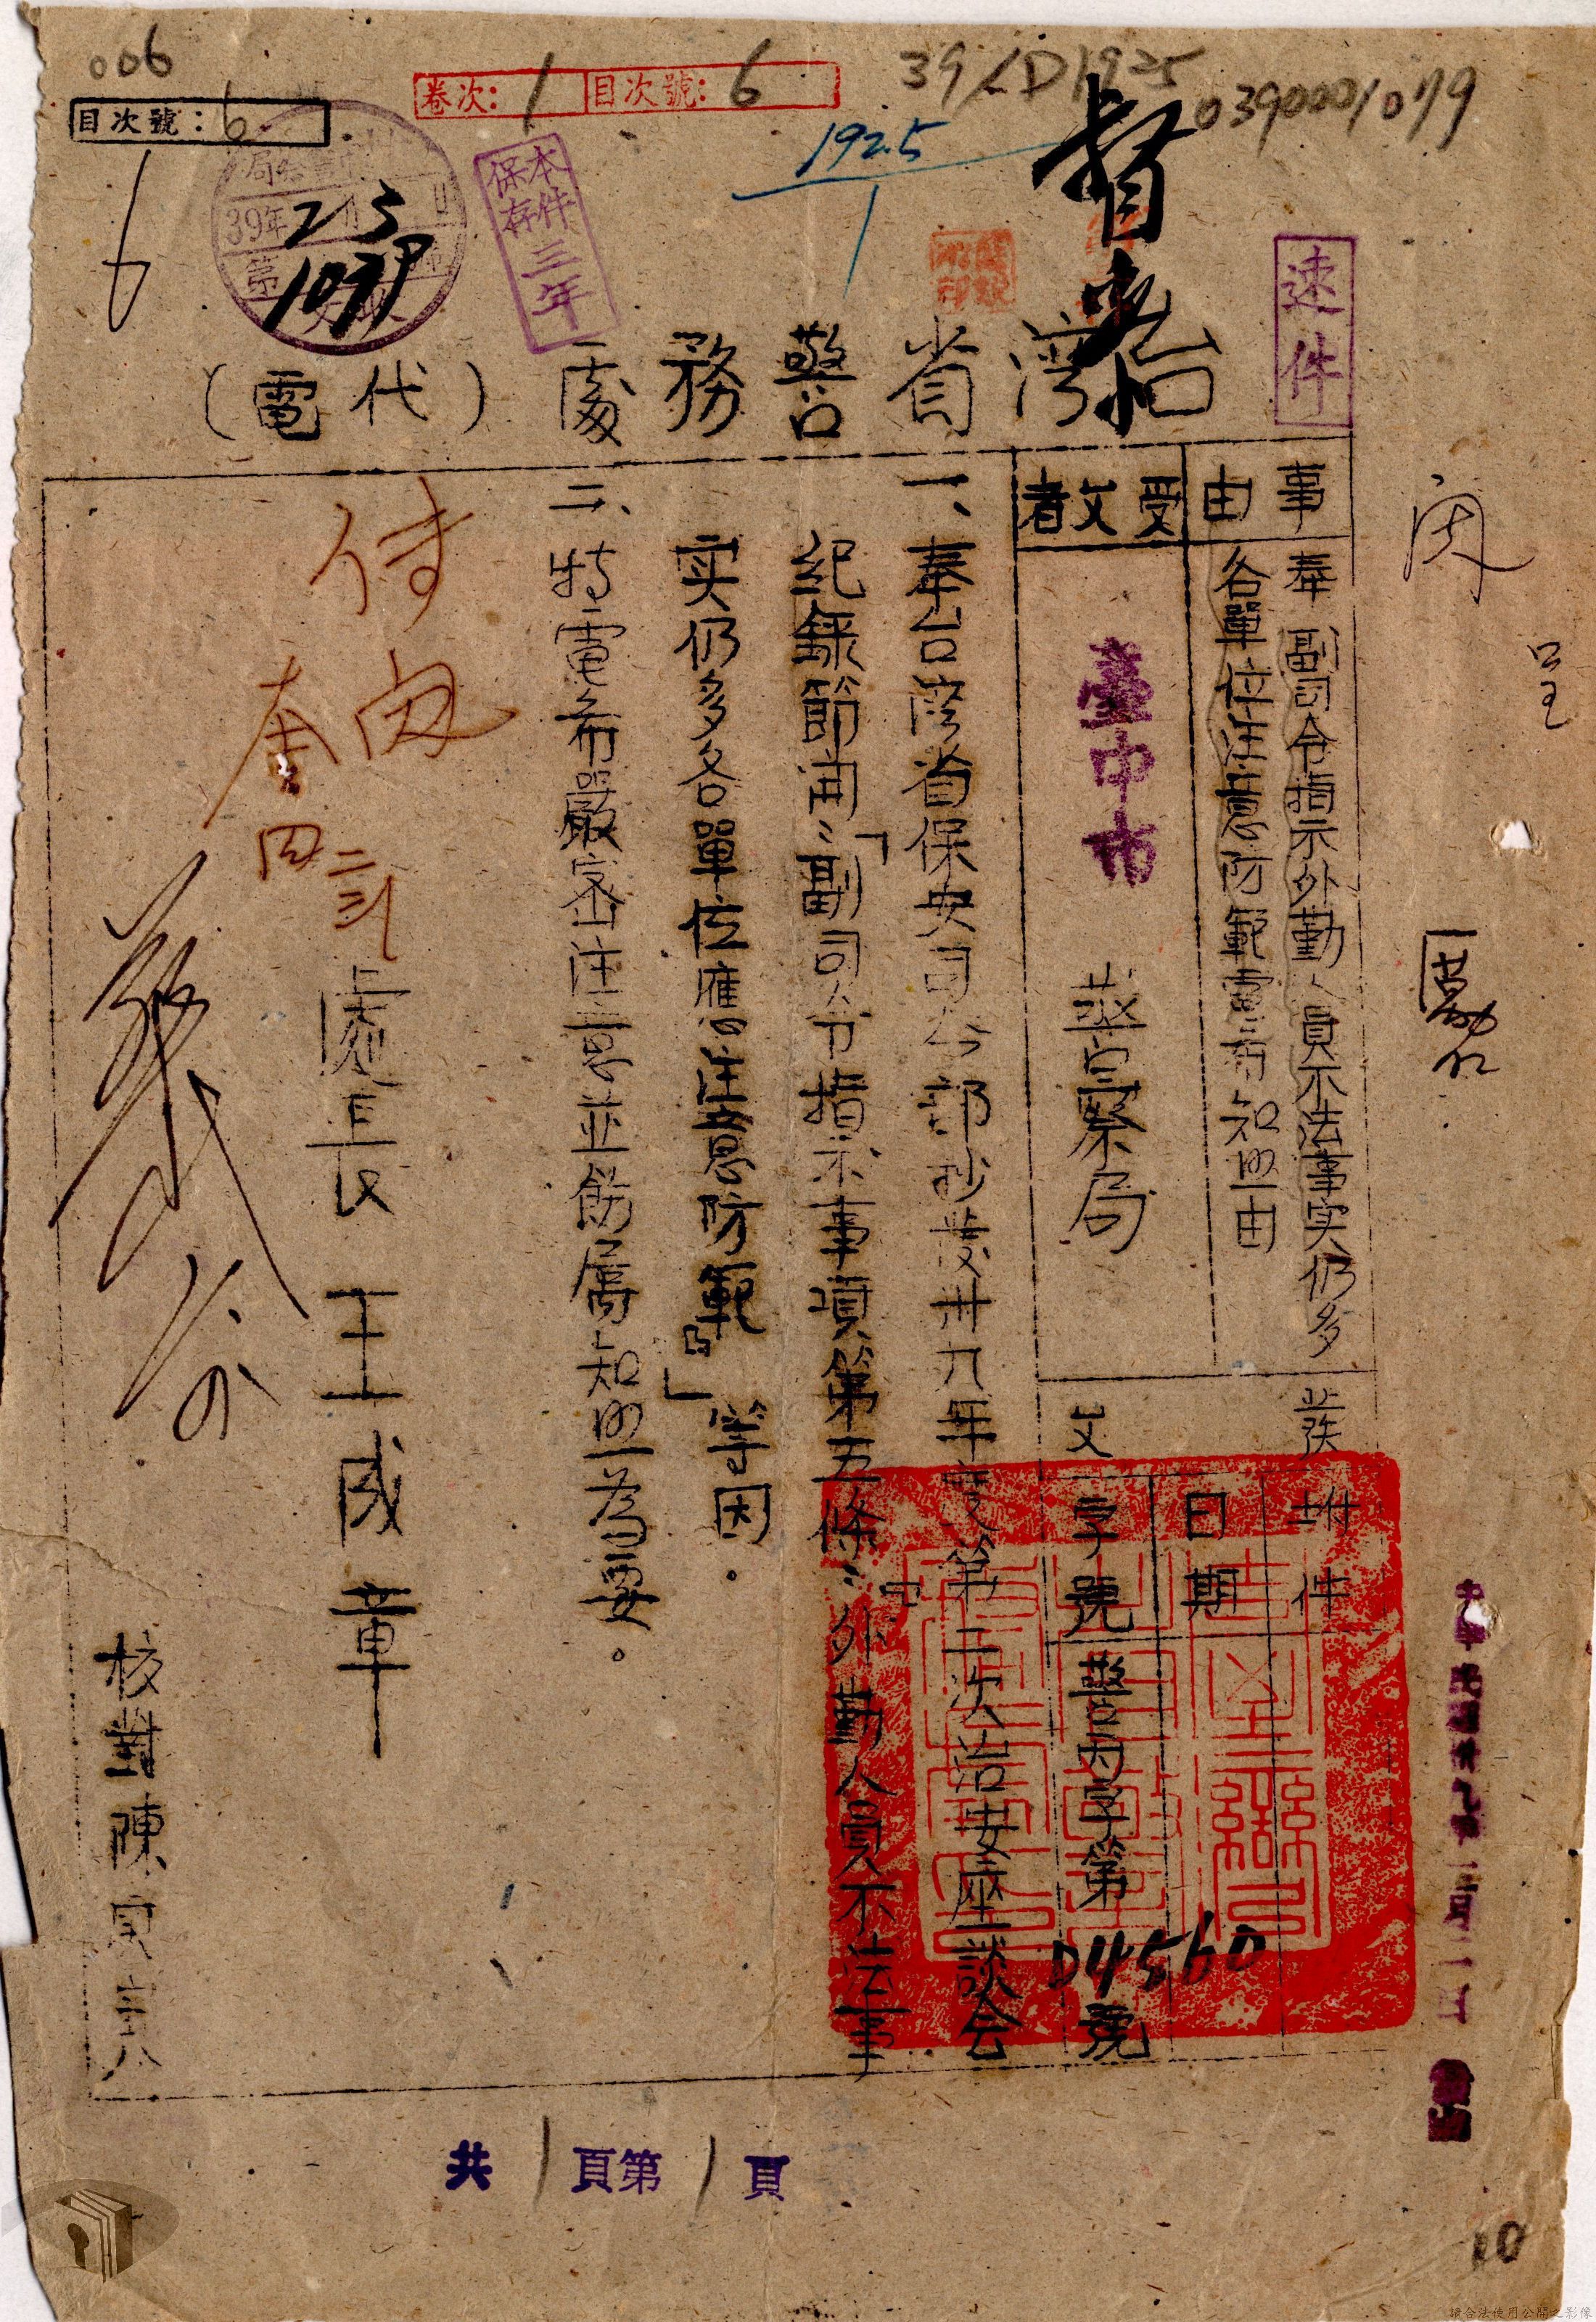 006
目次號：6
卷次：1 目次號：6
39/D1925
0390001079
1925
1
6
39年 2 5
第 1079
本件保存三年
速件
督
台灣省警務處（代電）
事由
奉 副司令指示外勤人員不法事实仍多
各單位注意防範電希知照由
受文者
臺中市 警察局
附件
日期
文字號 警丙字第D4560號
一、奉台灣省保安司令部抄發卅九年度第二次治安座談会
紀錄節開：「副司令指示事項第五條：『外勤人員不法事
实仍多各單位應注意防範』」等因。
二、特電希嚴密注意並飭屬知照為要。
處長 王成章
核對陳
呈
共1頁第1頁
10